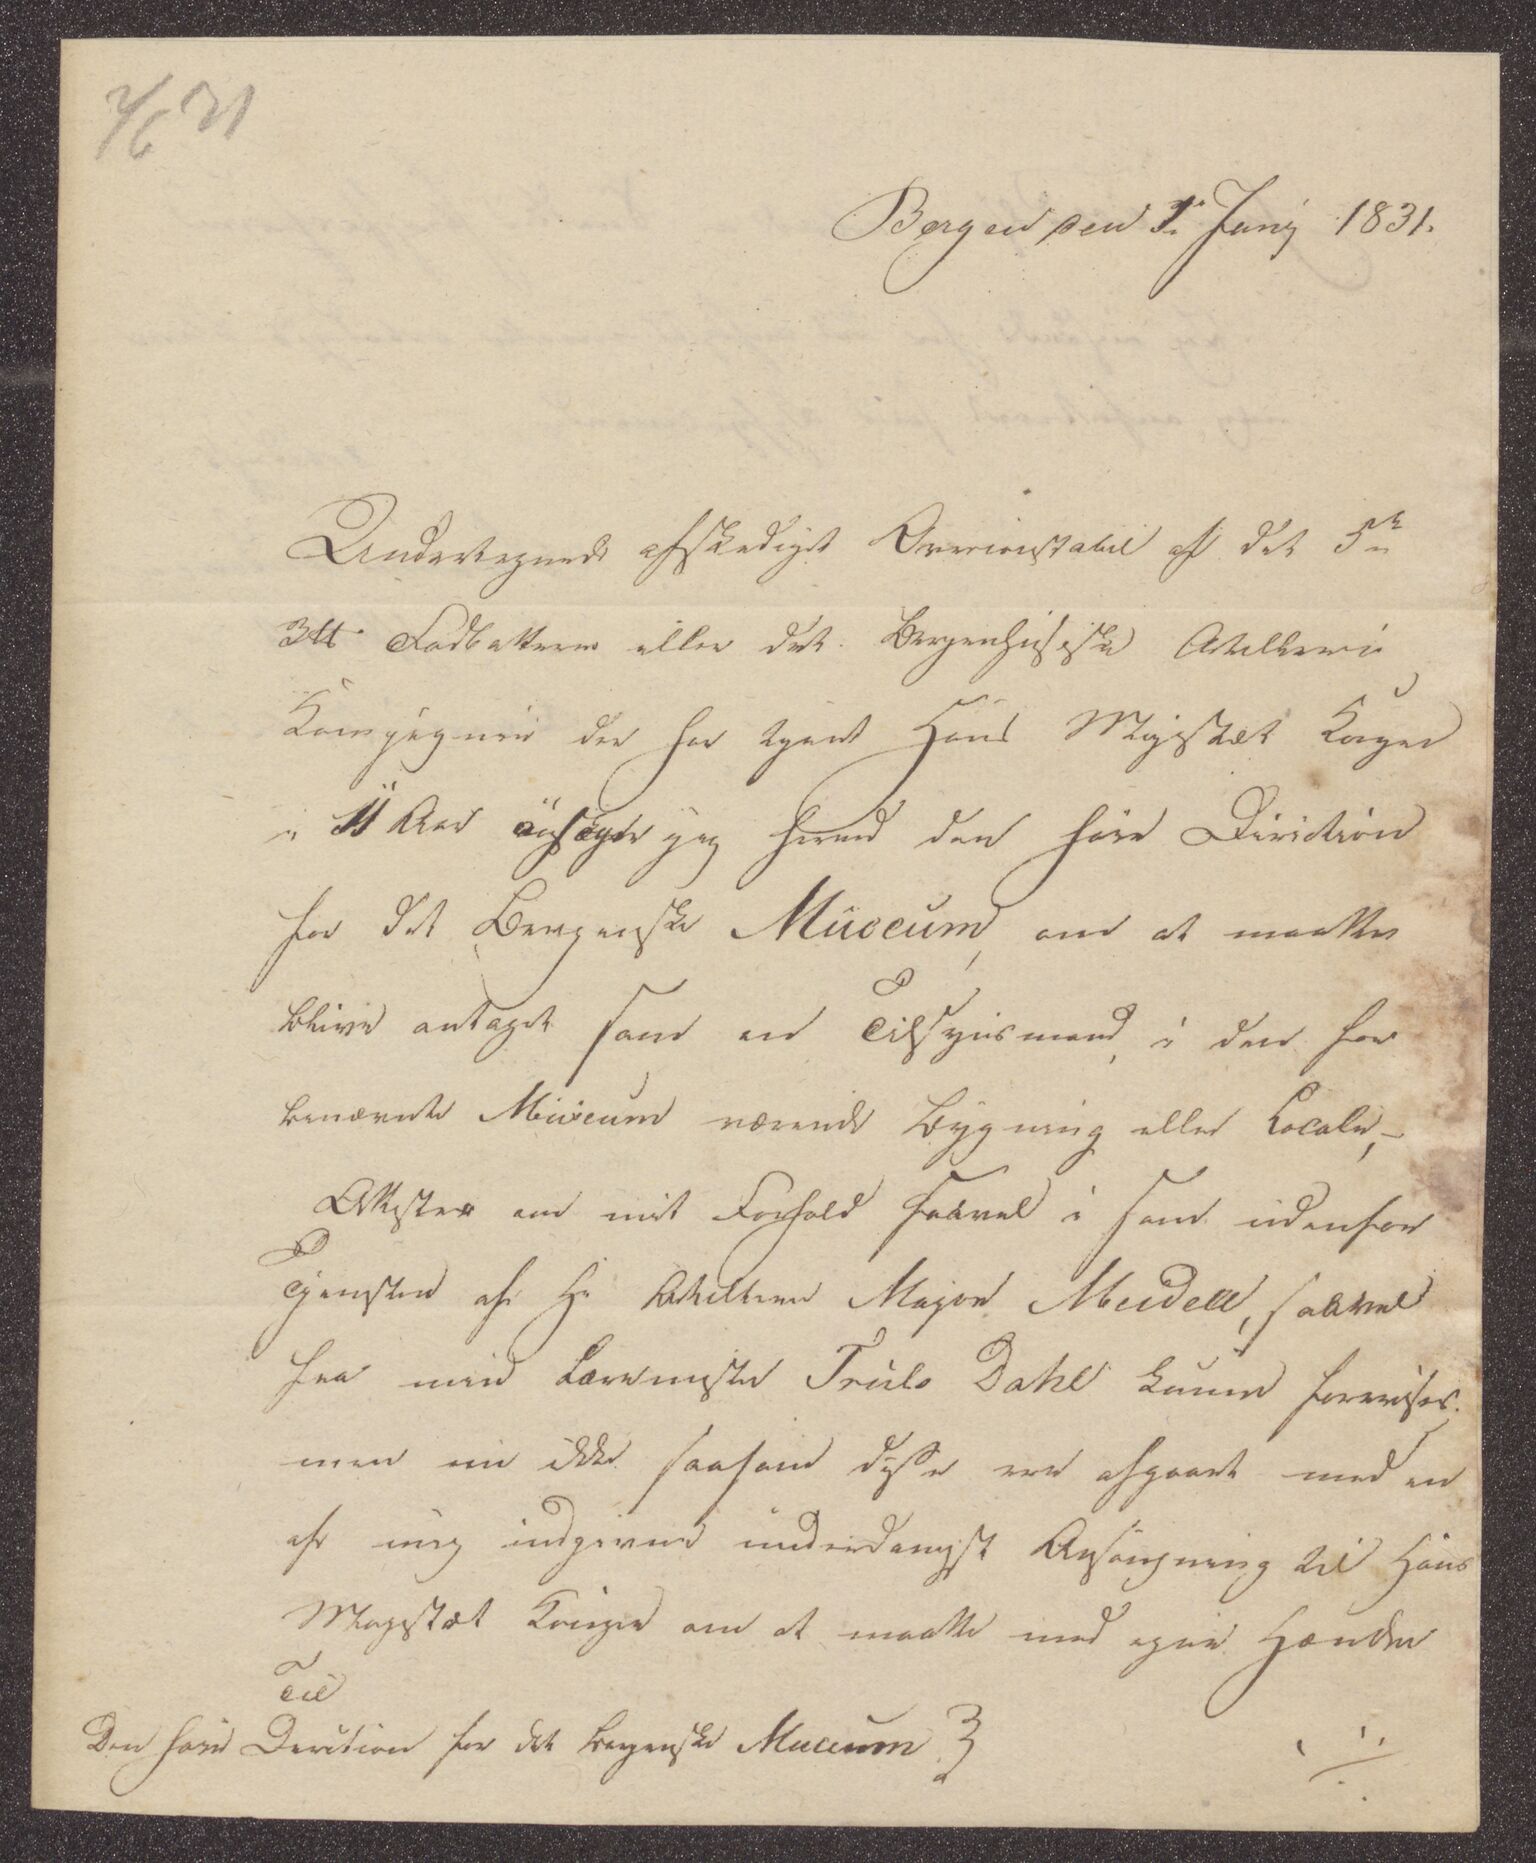 7/6 31
Bergen den 7. Junij 1831.
Undertegnede afskediget Overconstabel af det 5te
3 ℔ Fodbatterie eller det Bergenhusiske Artellerie
Kompagnie der har tjent Hans Majestæt Kongen
i 11 Aar ansøger jeg herved den høie Direction
for det Bergenske Museum, om at maatte
blive antaget som en Tilsynsmand i den for
benævnte Museum værende Bygning eller Locale,-
Attester om mit Forhold saavel i som udenfor
Tjensten af Hr Artellerie Major Meidell, saavel
fra min Læremester Truls Dahl kunne forevises
men nu ikke saasom disse ere afgaaet med en
af mig indgiven underdanigst Ansøgning til Hans
Majestæt Kongen om at maatte med egne Hænder
Til
Den høie Direction for det bergenske Museum }